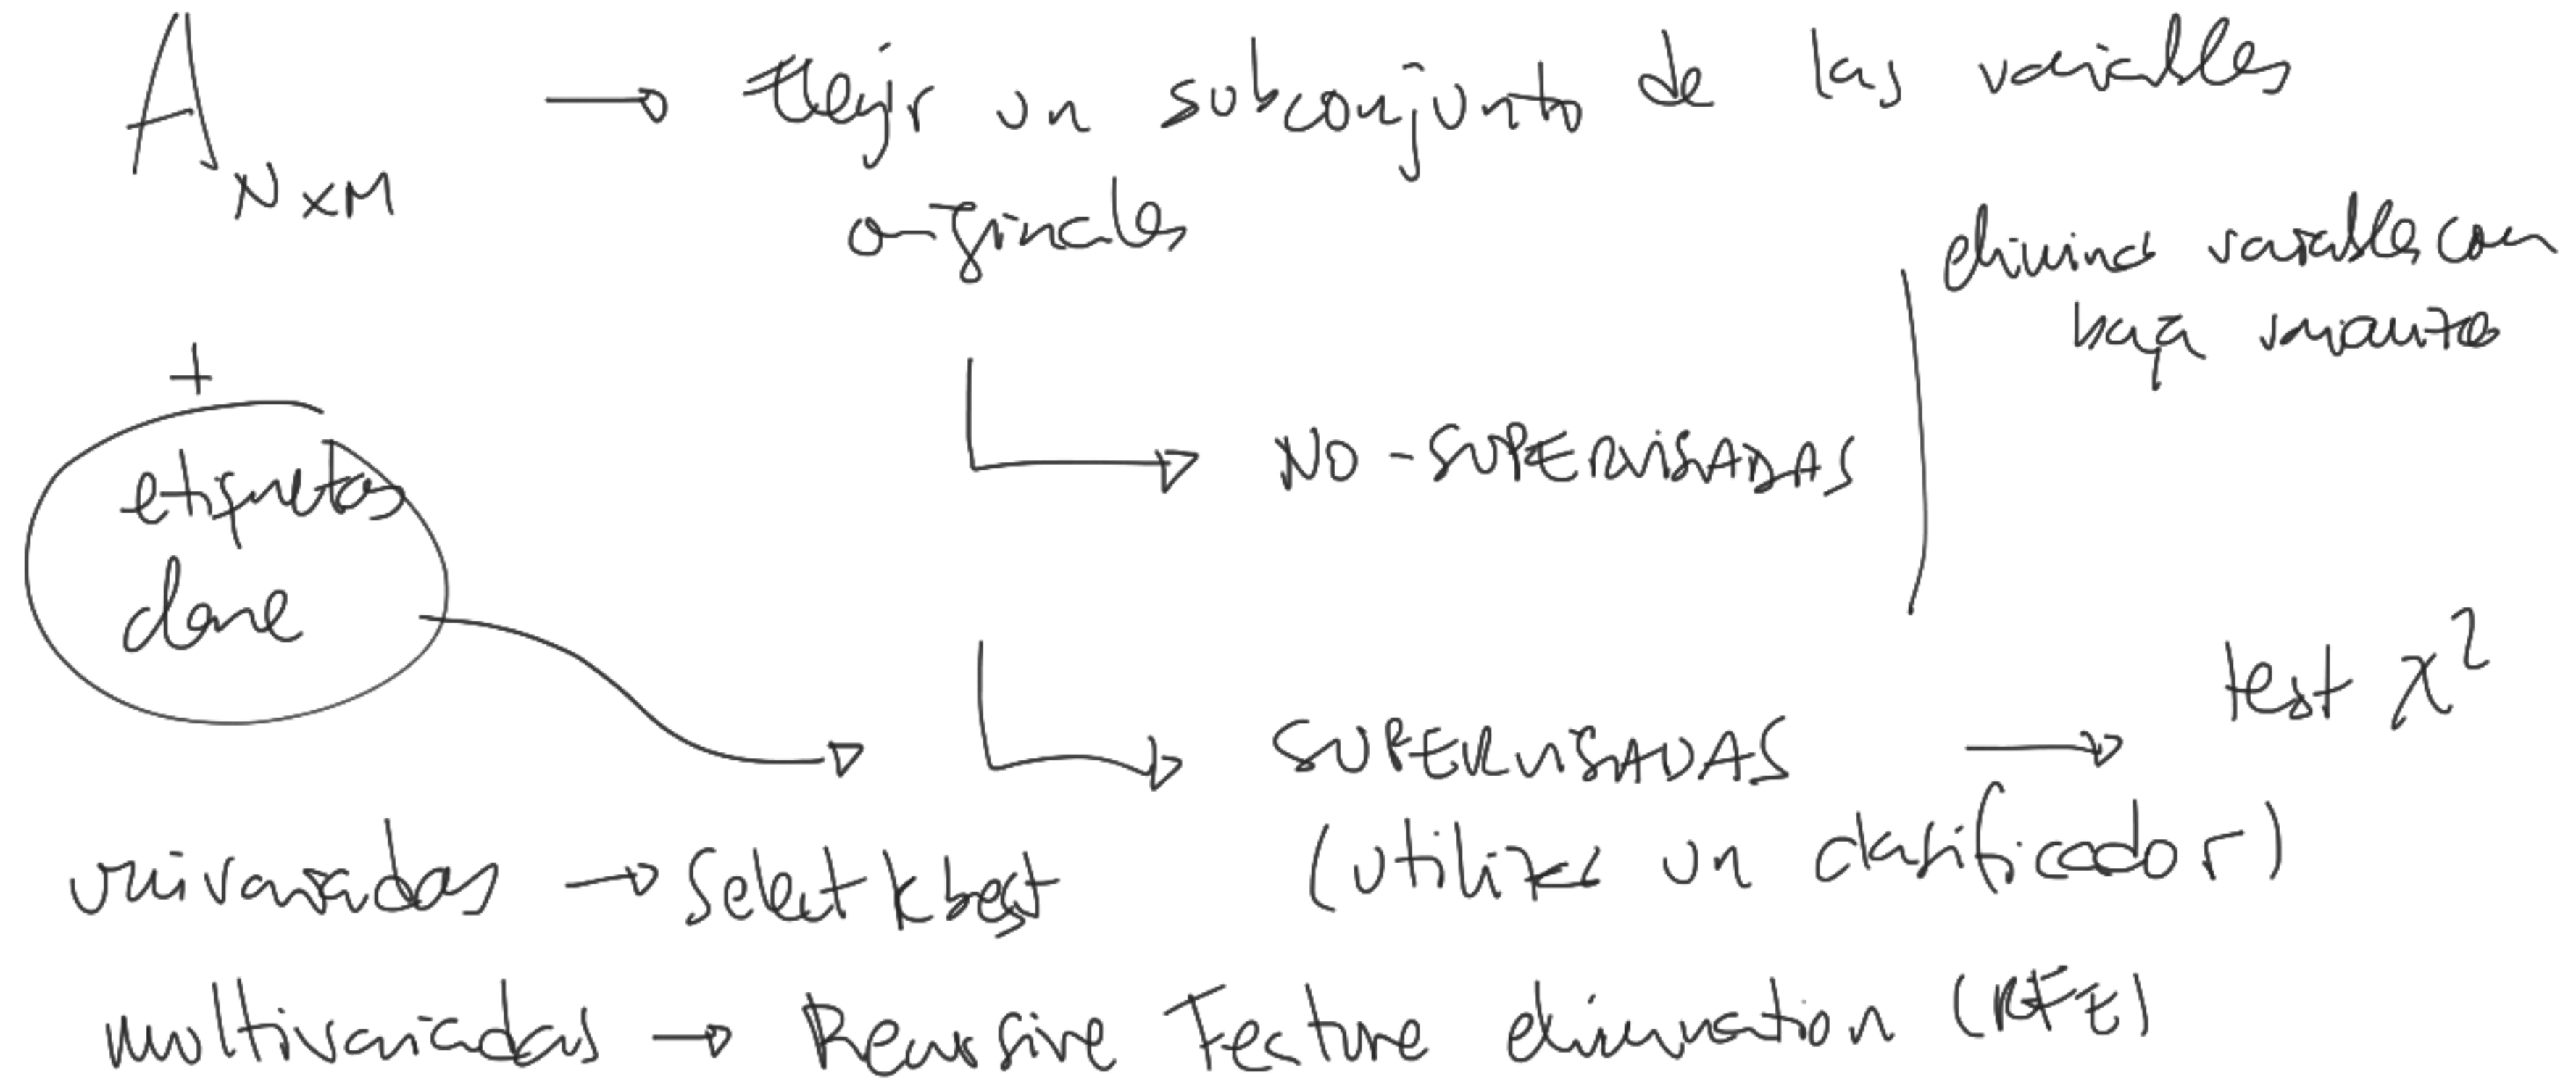 A NxM → Elegir un subconjunto de las variables
originales
elimina variables con
baja varianza
+
etiquetas
clase
NO-SUPERVISADAS
SUPERVISADAS → test χ²
(utiliza un clasificador)
univariadas → Select k best
multivariadas → Recursive Feature elimination (RFE)